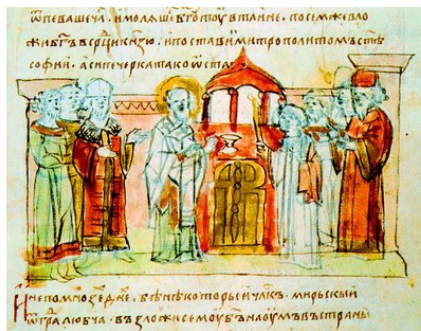 ѿпеваше ча. и моляше бг҃у ту втаине. посемже вло
жибг҃ъ в ср҃ци кн҃зю. ипоставии митрополитомъ ст҃ѣ
софии. асипечерка такоѡста.
И непомнозе дне. некоторыи члк҃ъ. мирьскыи
ѿгра любча. възложи емоу б҃ъ наоумъ въстраны